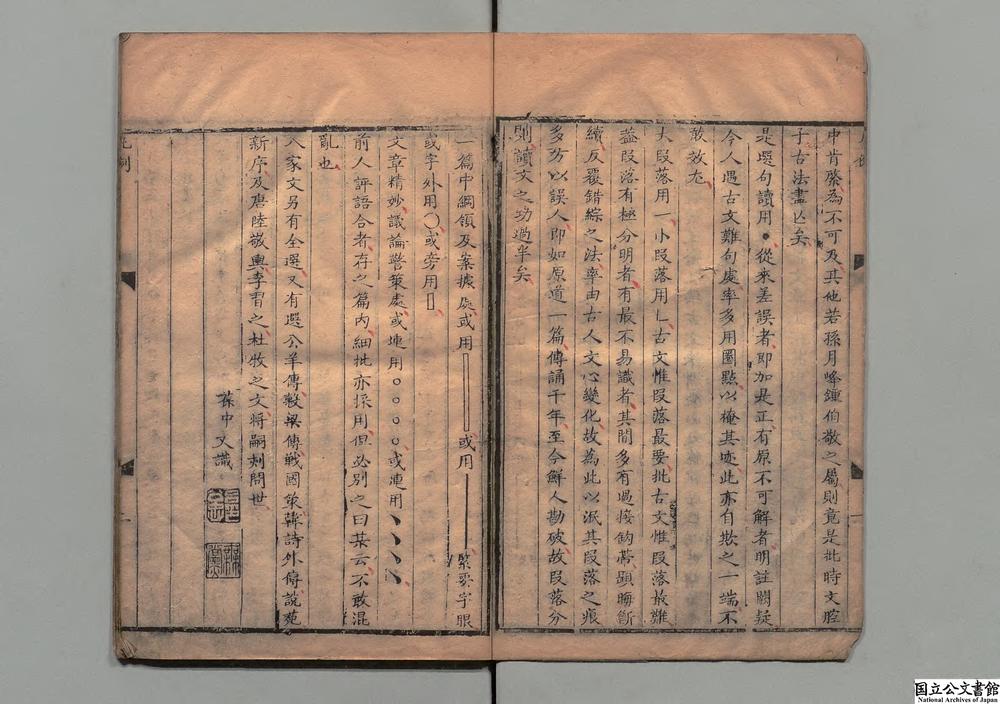 中肯綮為不可及其他若孫月峰鍾伯敬之屬則竟是批時文腔
子古法盡亡矣
是選句讀用●從來差誤者即加是正有原不可解者明註闕疑
今人遇古文難句處率多用圈點以掩其迹此亦自欺之一端不
敢效尤
大段落用一小段落用乚古文惟段落最要批古文惟段落最難
蓋段落有極分明者有最不易識者其間多有過接鉤帶顯晦斷
續反覆錯綜之法率由古人文心變化故為此以泯其段落之痕
多方以誤人即如原道一篇傳誦千年至今鮮人勘破故段落分
則讀文之功過半矣
一篇中綱領及案據處或用▯或用│緊要字眼
或字外用○或旁用▯
文章精妙議論警策處或連用○○○○或連用丶丶丶丶
前人評語合者存之篇內細批亦採用但必別之曰某云不敢混
亂也
八家文另有全選又有選公羊傳穀梁傳戰國策韓詩外傳說苑
新序及唐陸敬輿李習之杜牧之文將嗣刻問世
孫中又識
凡例
一
国立公文書館
National Archives of Japan